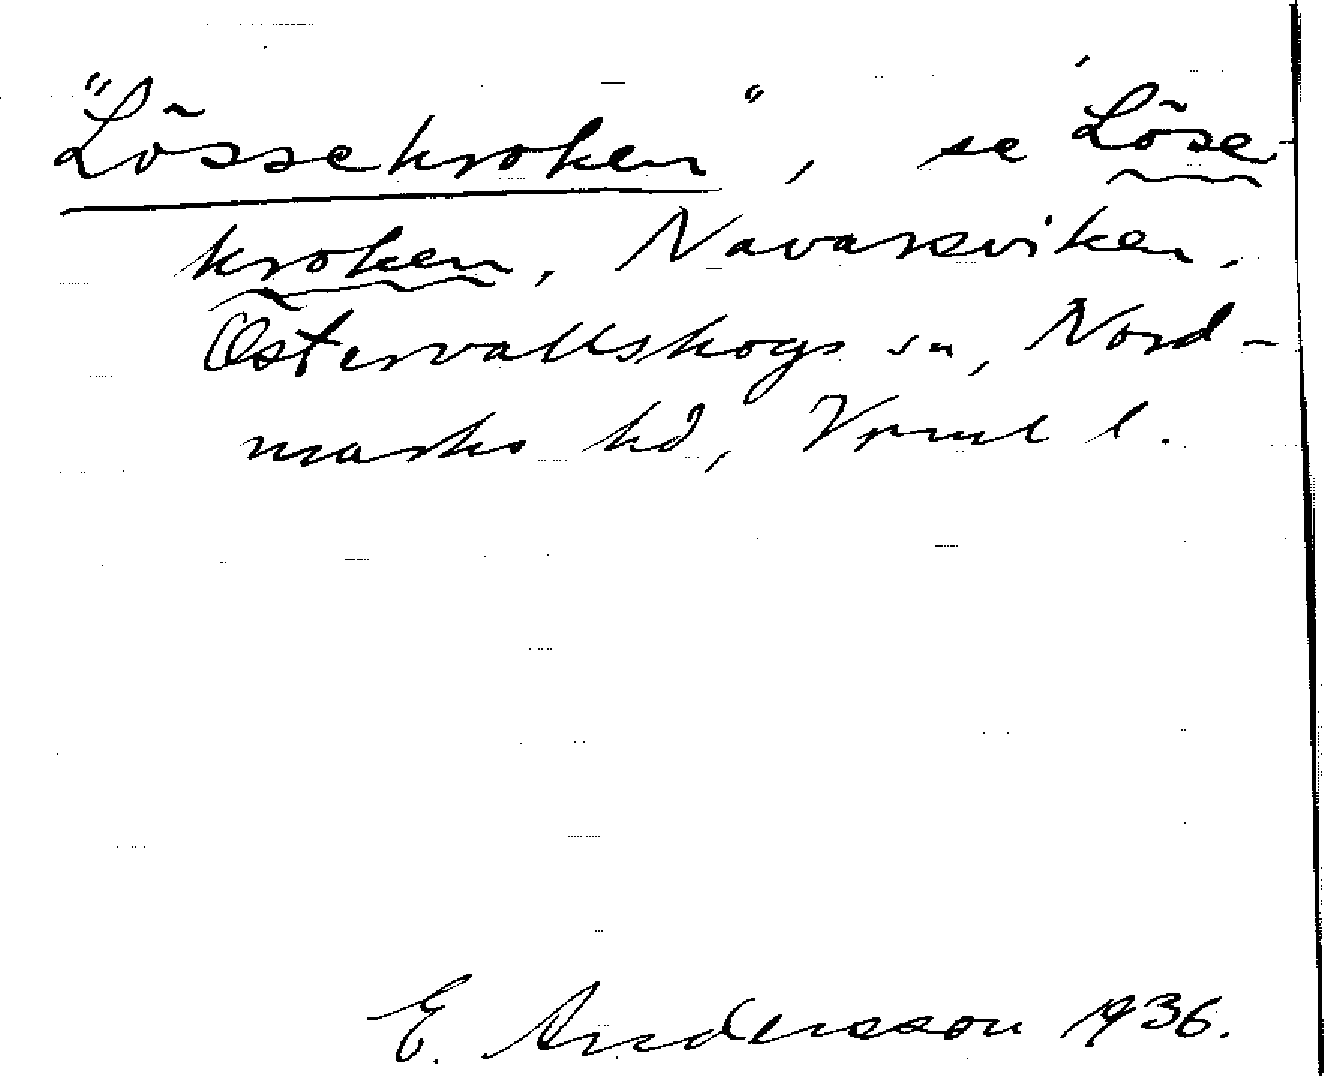 "Lössekroken", se Löse-
kroken, Navarsviken,
Östervallskogs sn, Nord-
marks hd, Vrml l.
E. Andersson 1936.